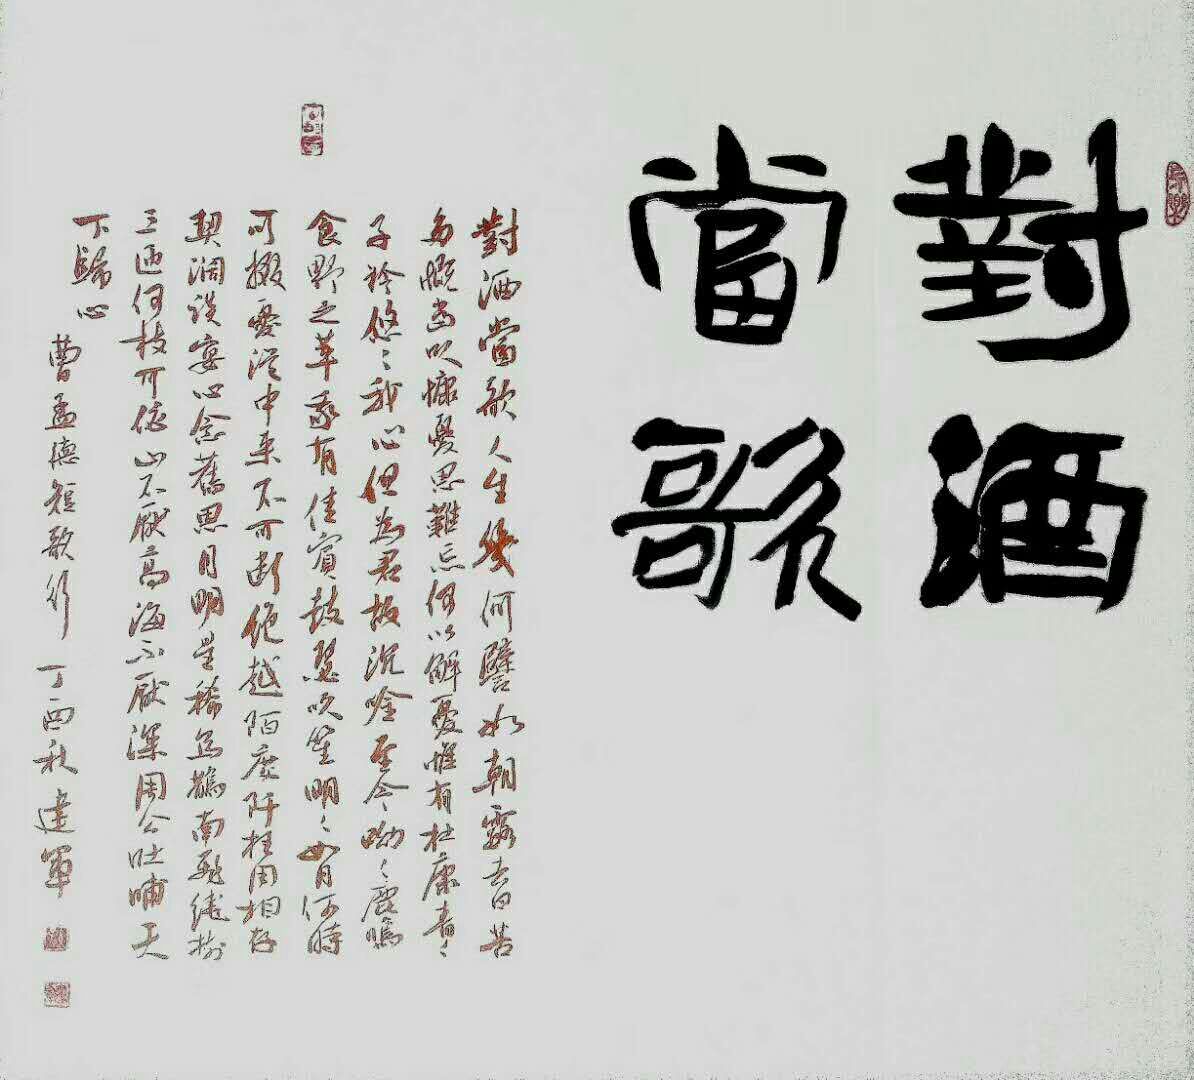 對酒
當歌
對酒當歌人生幾何譬如朝露去日苦
多慨當以慷憂思難忘何以解憂惟有杜康青〻
子衿悠〻我心但為君故沉吟至今呦〻鹿鳴
食野之苹我有佳賓鼓瑟吹笙明〻如月何時
可掇憂從中來不可斷絕越陌度阡枉用相存
契闊談宴心念舊恩月明星稀烏鵲南飛繞樹
三匝何枝可依山不厭高海不厭深周公吐哺天
下歸心
曹孟德短歌行 丁酉秋建軍